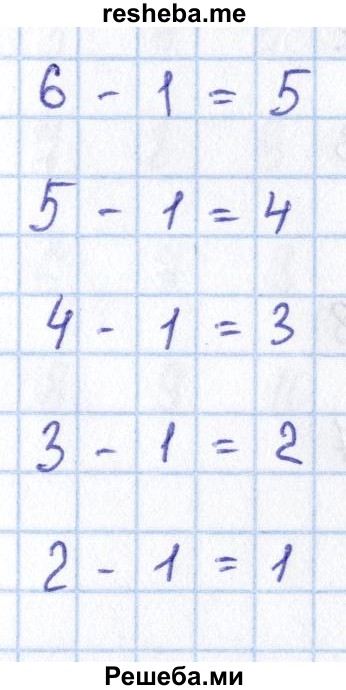 resheba.me
6 - 1 = 5
5 - 1 = 4
4 - 1 = 3
3 - 1 = 2
2 - 1 = 1
Решеба.ми